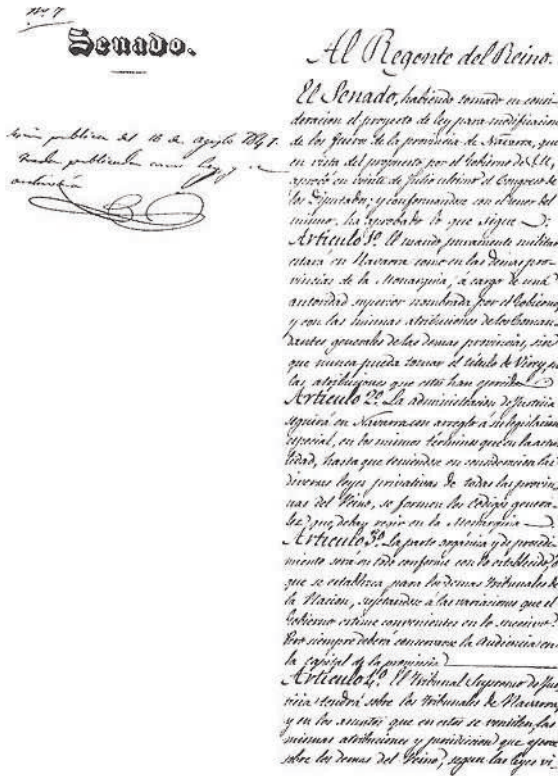 Nº 7
Senado.
Sesión publica del 16 de Agosto 1841.
Queda publicada como ley, y se
archivará
Al Regente del Reino.
El Senado, habiendo tomado en consi-
deracion el proyecto de ley para modificacion
de los fueros de la provincia de Navarra, que
en vista del propuesto por el Gobierno de S.M.,
aprobó en veinte de Julio ultimo el Congreso de
los Diputados; y conformandose con el tenor del
mismo, ha aprobado lo que sigue
Articulo 1º. El mando puramente militar
estará en Navarra como en las demas pro-
vincias de la Monarquia, á cargo de una
autoridad superior nombrada por el Gobierno,
y con las mismas atribuciones de los Coman-
dantes generales de las demas provincias, sin
que nunca pueda tomar el título de Virey, ni
las atribuciones que estos han ejercido
Articulo 2º. La administracion de Justicia
seguirá en Navarra con arreglo á su legislacion
especial, en los mismos términos que en la actua-
lidad, hasta que teniendose en consideracion las
diversas leyes privativas de todas las provin-
cias del Reino, se formen los Códigos genera-
les que deban regir en la Monarquia
Articulo 3º. La parte orgánica y de procedi-
miento será en todo conforme con lo establecido, ó
que se establezca para los demas tribunales de
la Nacion, sujetandose á las variaciones que el
Gobierno estime convenientes en lo sucesivo.
Pero siempre deberá conservarse la Audiencia en
la capital de la provincia
Articulo 4º. El tribunal Supremo de Jus-
ticia tendrá sobre los tribunales de Navarra,
y en los asuntos que en estos se ventilen, las
mismas atribuciones y jurisdiccion que ejerce
sobre los demas del Reino, segun las leyes vi-